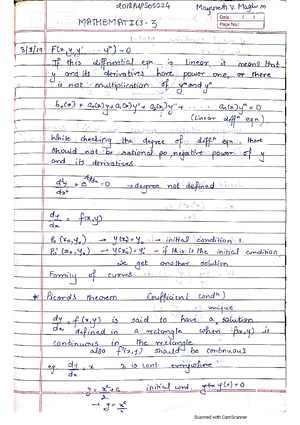 2018A4PS0522G
MATHEMATICS-3
Date :
Page No.:
3/8/19 F(x,y,y' ... yⁿ) = 0
If this differential eqn is linear, it means that
y and its derivatives have power one, or there
is not multiplication of y and yⁿ.
b₀(x) + a₀(x)y + a₁(x)y' + a₂(x)y'' + ... aₙ(x)yⁿ = 0
(linear diffⁿ eqn)
While checking the degree of diffⁿ eqn. there
should not be rational po, negative power of y
and its derivatives.
= 0 → degree not defined
dy/dx = f(x,y)
P₀ (x₀, y₀) → y(x₀) = y₀ → initial condition 1
→ if this is the initial condition
we get another solution
Family of curves
* Picard's theorem (sufficient condⁿ)
unique
dy/dx = f(x,y) is said to have a solution
defined in a rectangle when f(x,y) is
continuous in the rectangle
also f'(x,y) should be continuous
eg. dy/dx = x x is cont. everywhere
y = x²/2 + c initial cond. y(0) = 0
→ y = x²/2
Scanned with CamScanner